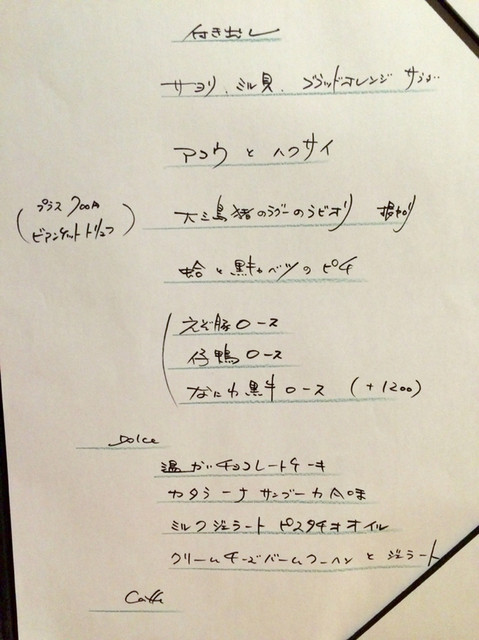 付き出し
サヨリ、ミル貝、ブラッドオレンジ サラダ
アコウ と ハクサイ
(プラス 700円
ビアンケットトリュフ)
大三島猪のラグーのラビオリ
蛤と黒キャベツのピチ
えぞ豚ロース
仔鴨ロース
なにわ黒牛ロース (+1200)
Dolce
温かいチョコレートケーキ
カタラーナ サンブーカ風味
ミルクジェラート ピスタチオオイル
クリームチーズバームクーヘン と ジェラート
Caffe